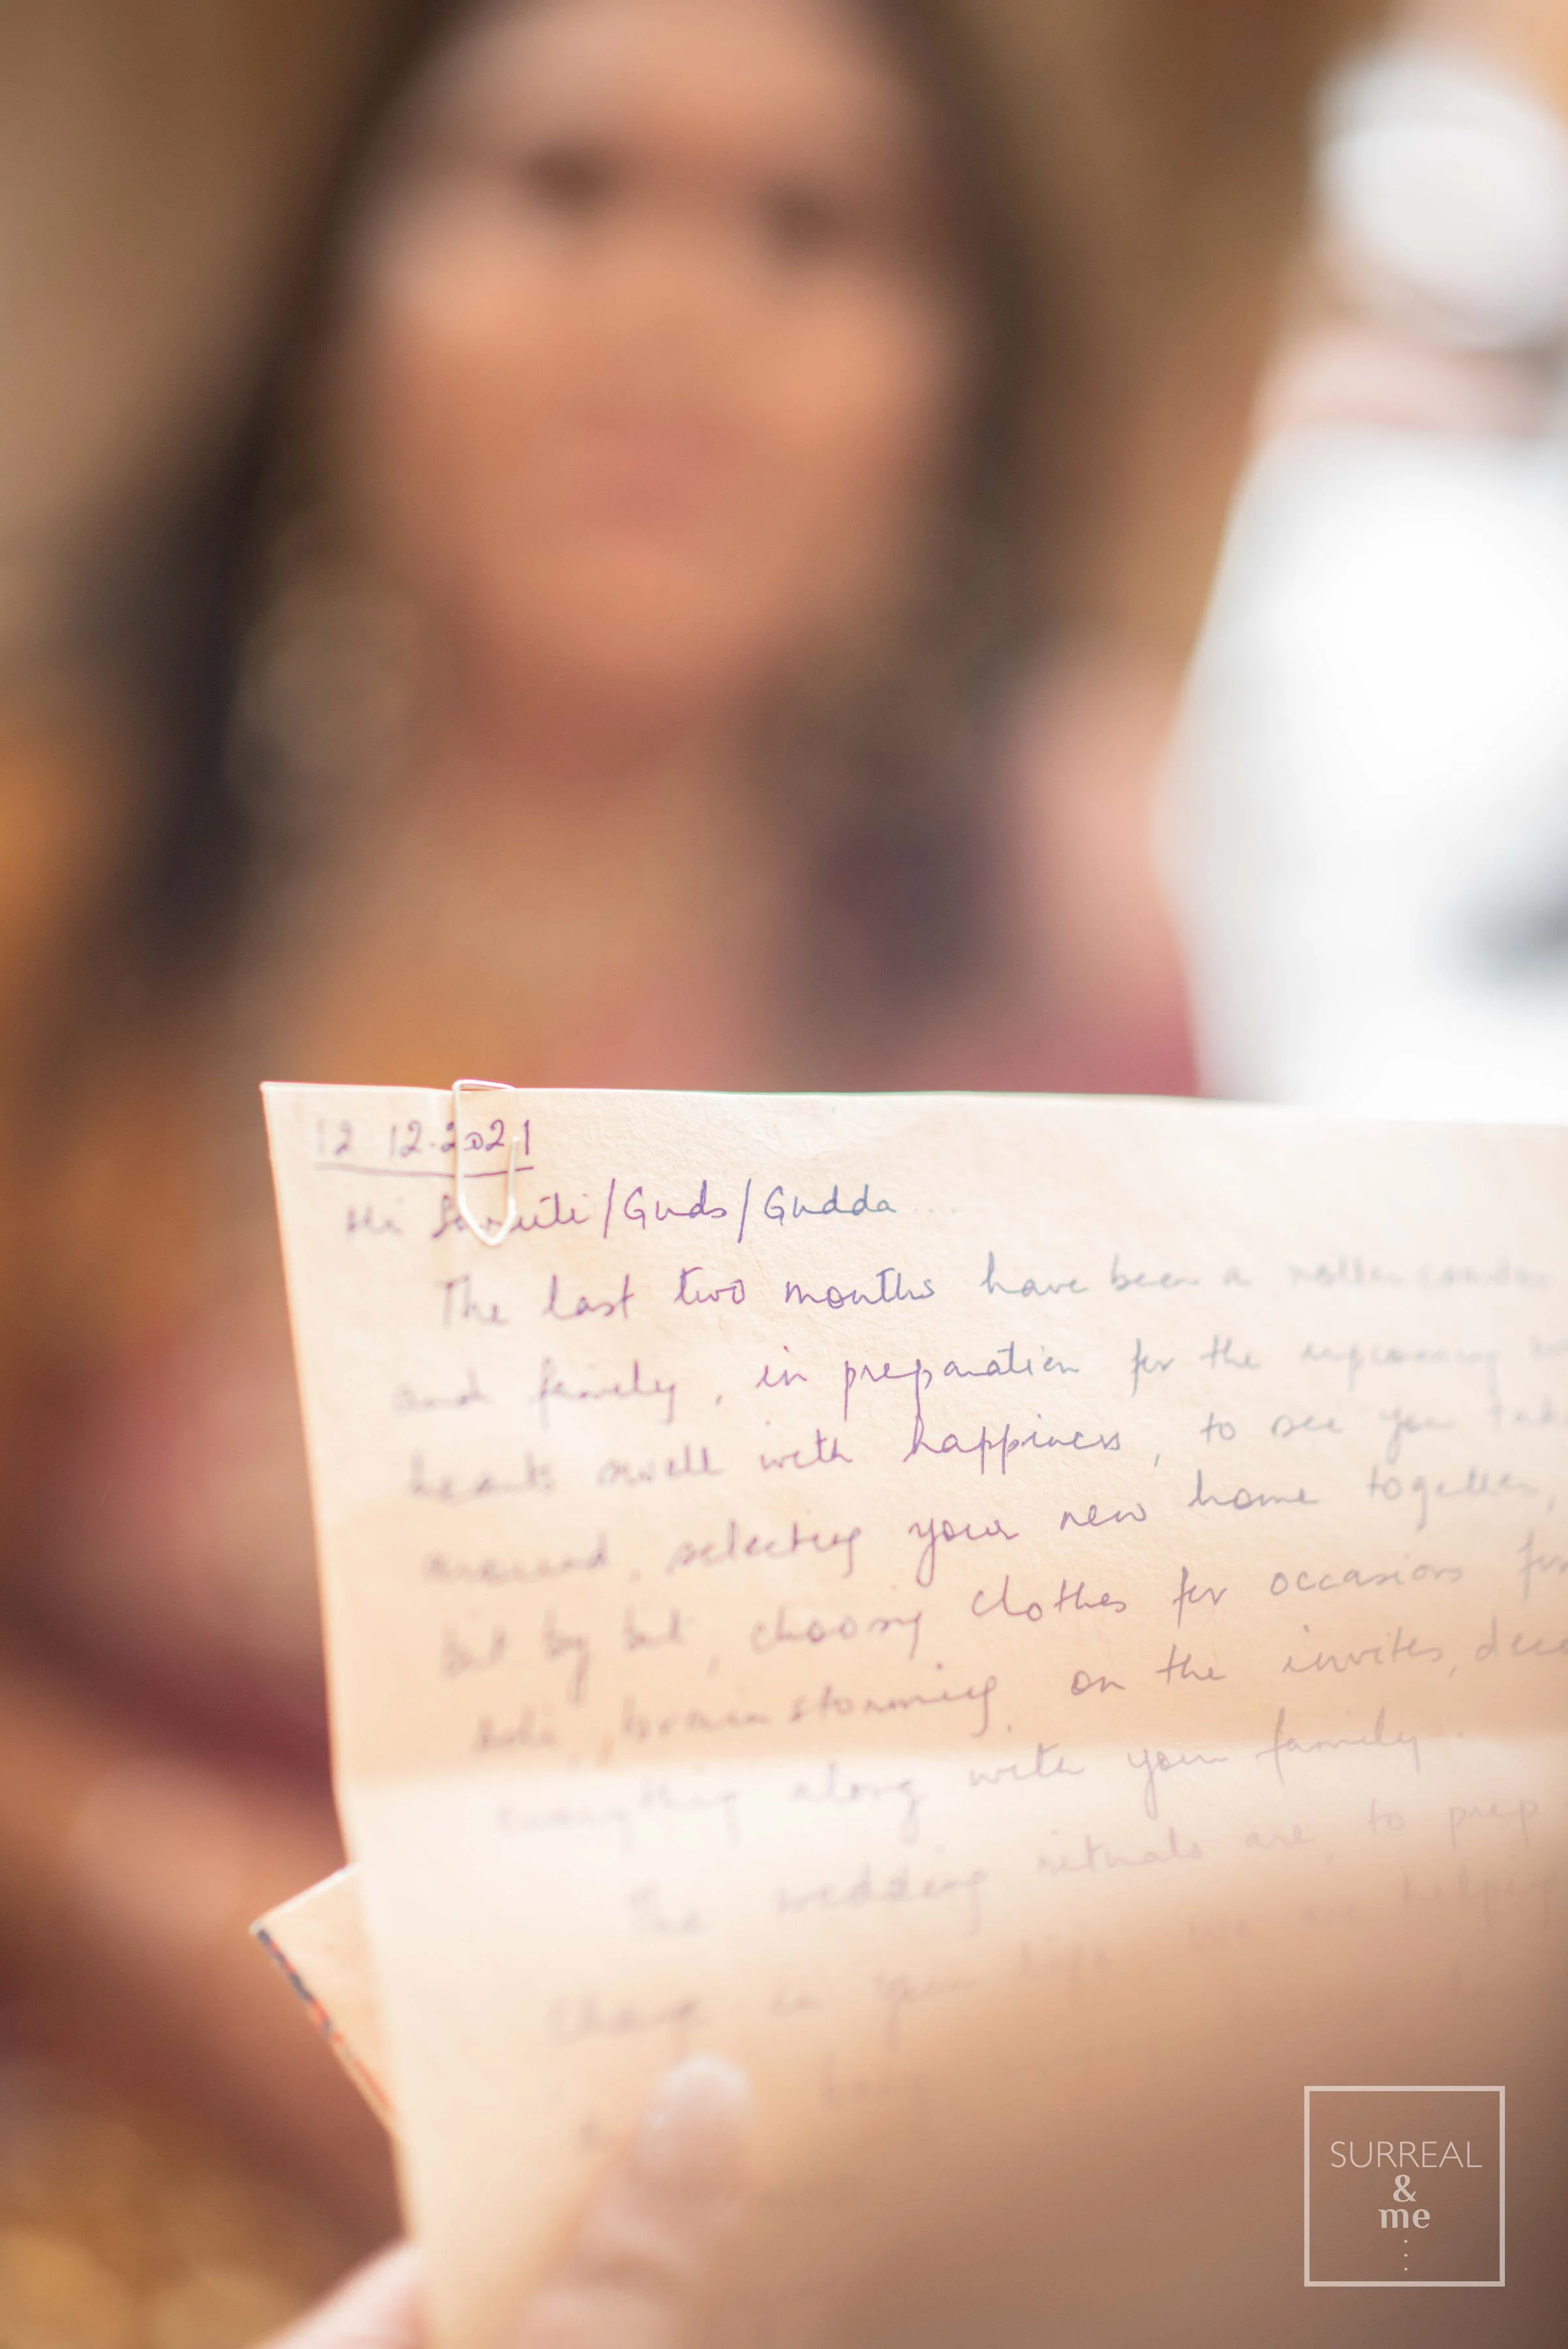 12.12.2021
Hi /Guds/Gudda....
The last two months have been a roller coaster
and family, in preparation for the upcoming
hearts swell with happiness, to see you
around, selecting your new home together,
bit by bit, choosing clothes for occasions
brain storming on the invites,
everything along with your family...
The wedding rituals are to prep
change in your life. We are helping
SURREAL
&
me